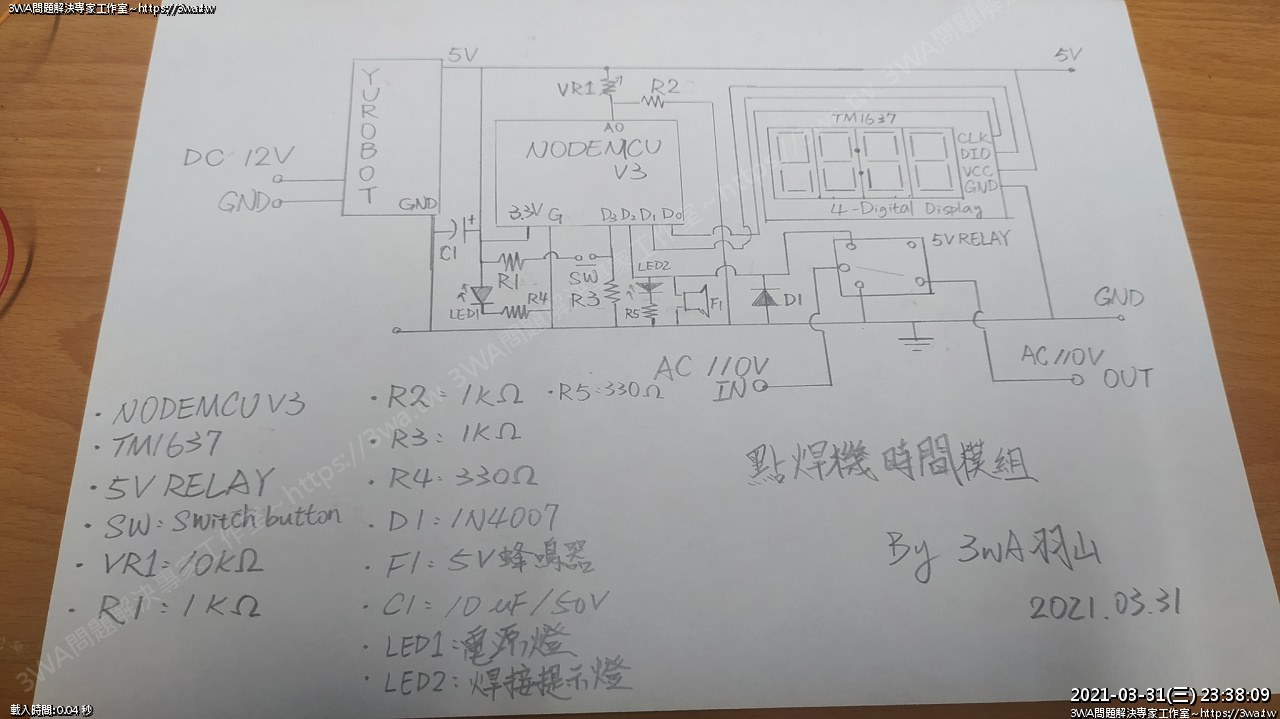 3WA問題解決專家工作室~https://3wa.tw
5V
5V
YUROBOT
VR1
R2
A0
NODEMCU
V3
TM1637
CLK
DIO
VCC
GND
4-Digital Display
DC 12V
GND
GND
3.3V G D3 D2 D1 D0
C1
+
R1
SW
LED2
5V RELAY
LED1
R4
R3
R5
F1
D1
GND
AC 110V
IN
AC 110V
OUT
・NODEMCU V3
・TM1637
・5V RELAY
・SW: Switch button
・VR1: 10kΩ
・R1: 1KΩ
・R2: 1KΩ ・R5: 330Ω
・R3: 1KΩ
・R4: 330Ω
・D1: 1N4007
・F1: 5V蜂鳴器
・C1: 10uF/50V
・LED1:電源燈
・LED2:焊接提示燈
點焊機時間模組
By 3WA羽山
2021.03.31
載入時間:0.04 秒
2021-03-31(三) 23:38:09
3WA問題解決專家工作室~https://3wa.tw